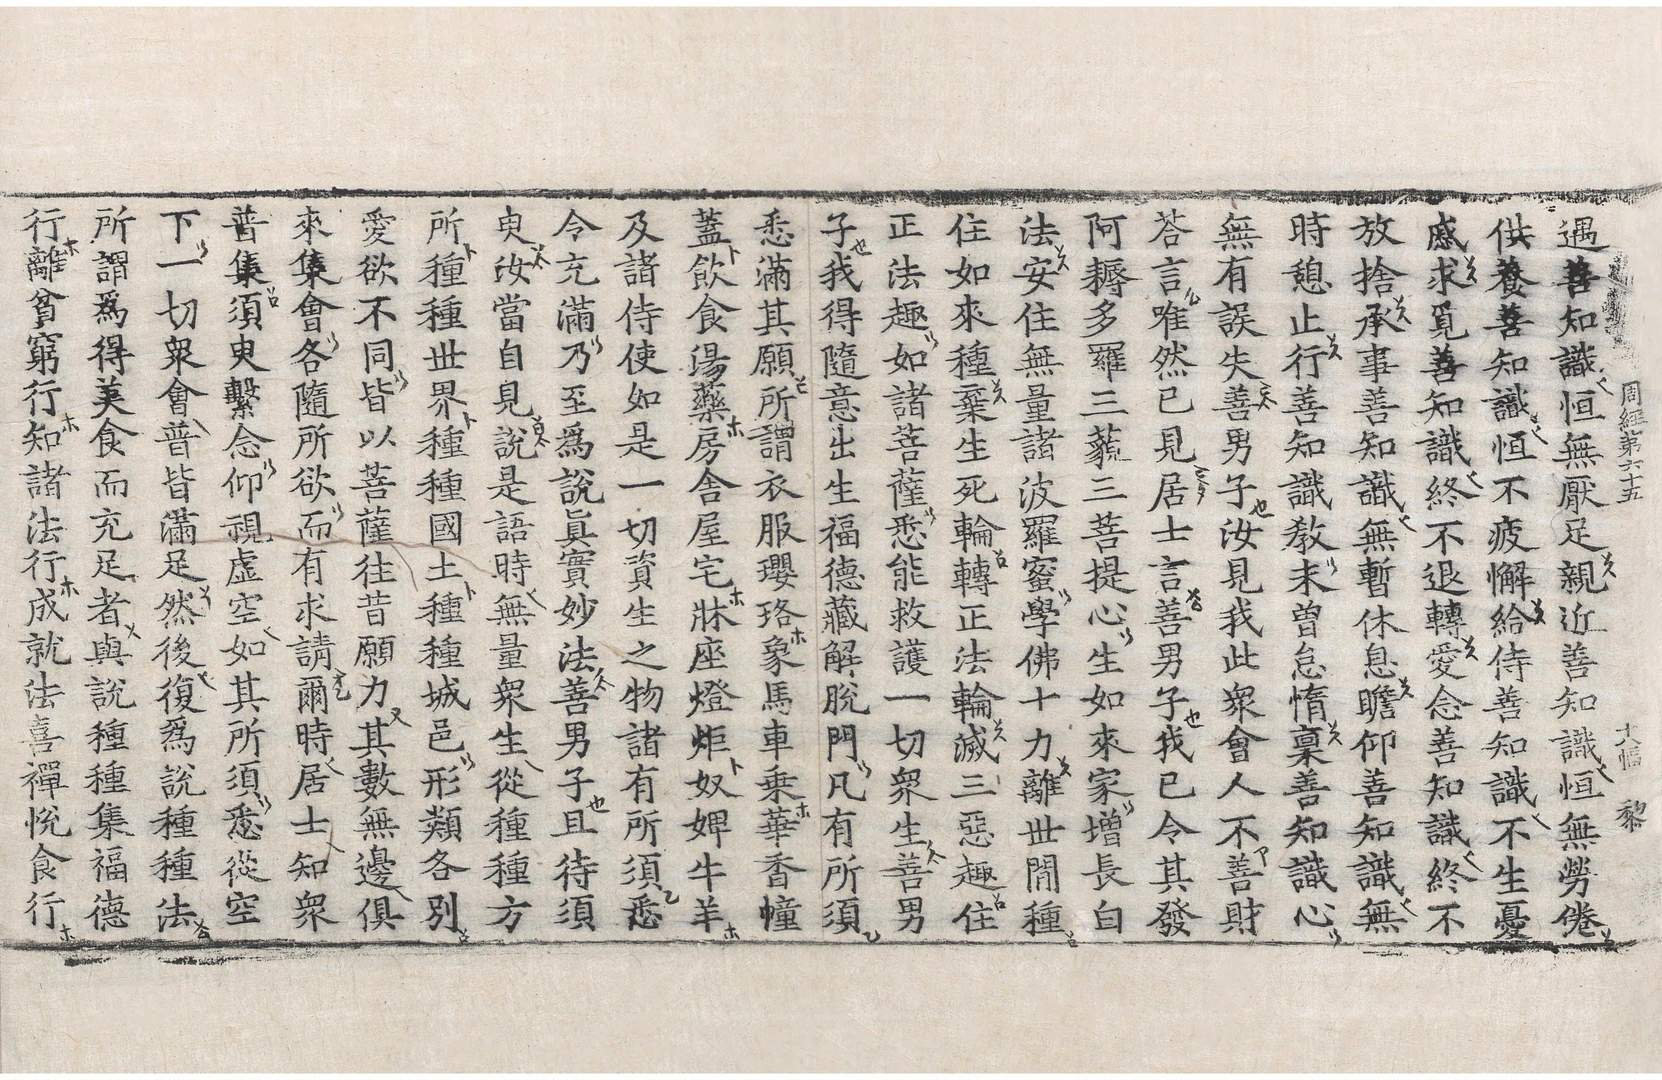 周經第六十五　黎
遇善知識恒無厭足親近善知識恒無勞倦
供養善知識恒不疲懈給侍善知識不生憂
慼求覓善知識終不退轉愛念善知識終不
放捨承事善知識無暫休息瞻仰善知識無
時憩止行善知識教未曾怠惰稟善知識心
無有誤失善男子汝見我此衆會人不善財
荅言唯然已見居士言善男子我已令其發
阿耨多羅三藐三菩提心生如來家增長白
法安住無量諸波羅蜜學佛十力離世閒種
住如來種棄生死輪轉正法輪滅三惡趣住
正法趣如諸菩薩悉能救護一切衆生善男
子我得隨意出生福德藏解脫門凡有所須
悉滿其願所謂衣服瓔珞象馬車乗華香幢
蓋飲食湯藥房舍屋宅牀座燈炬奴婢牛羊
及諸侍使如是一切資生之物諸有所須悉
令充滿乃至爲說眞實妙法善男子且待須
臾汝當自見說是語時無量衆生從種種方
所種種世界種種國土種種城邑形類各別
愛欲不同皆以菩薩往昔願力其數無邊俱
來集會各隨所欲而有求請爾時居士知衆
普集須臾繫念仰視虛空如其所須悉從空
下一切衆會普皆滿足然後復爲說種種法
所謂爲得美食而充足者與說種種集福德
行離貧窮行知諸法行成就法喜禪悅食行